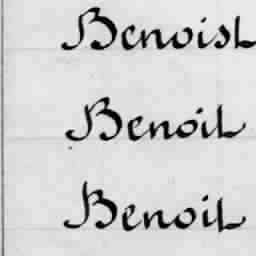 Benoist
Benoit
Benoit